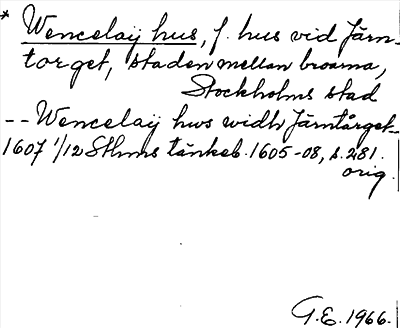 * Wencelaij hus, f. hus vid Järn-
torget, staden mellan broarna,
Stockholms stad
-- Wencelaij hws widh Järntårget
1607 1/12 Sthms tänkeb. 1605-08, s. 281.
orig.
G.E. 1966.